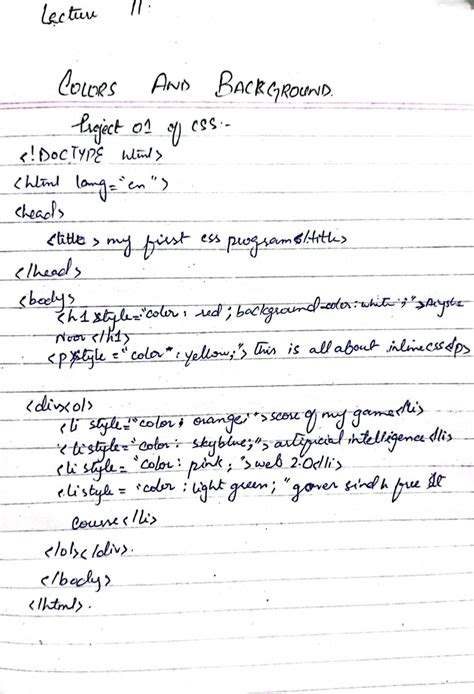 Lecture 11.
COLORS AND BACKGROUND.
Project 01 of css:-
<!DOCTYPE html>
<html lang="en">
<head>
<title> my first css program</title>
</head>
<body>
<h1 style="color: red; background-color: white;">
Noor </h1>
<p style="color": yellow;"> this is all about inline css</p>
<div><ol>
<li style="color: orange;">score of my game</li>
<li style="color: skyblue;">artificial intelligence</li>
<li style="color: pink;">web 2.0</li>
<li style="color: light green;" gover sindh free
Course</li>
</ol></div>.
</body>
</html>.